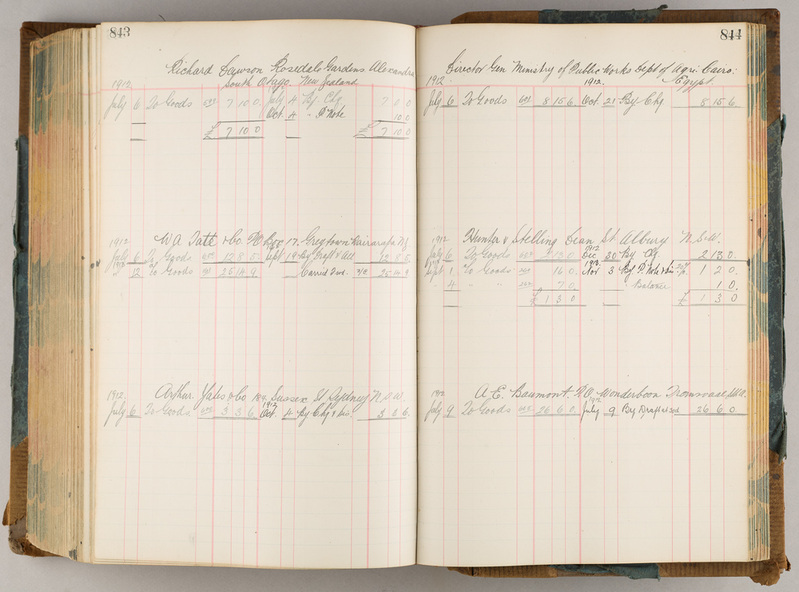 843
Richard Dawson Rosedale Gardens Alexandra
1912 South Otago. New Zealand
July 6 To Goods 7 10 0 July 4 By Chq 7 0 0
Oct. 4 " P Note 10 0
£ 7 10 0 £ 7 10 0
1912 W A Tatt & Co. PO Box 17. Greytown Wairarapa NZ
July 6 To Goods 12 8 5 Sept 19 By Draft & all 12 8 5
12 To Goods 25 14 9 Carried Fwd. 25 14 9
1912. Arthur Yates & Co 184 Sussex St Sydney N.S.W.
1912
July 6 To Goods 3 3 6 Oct 4 By Chq & Dis. 3 3 6
844
Director Gen Ministry of Public Works Dept of Agri. Cairo.
1912 1912. Egypt.
July 6 To Goods 8 15 6 Oct. 21 By Chq 8 15 6
1912 Hunter & Stelling Dean St. Albury N.S.W.
1912
July 6 To Goods 2 13 0 Dec 30 By Chq 2 13 0.
1913
Sept 1 To Goods 16 0 Nov 3 By P. Note 1 2 0
" 4 " " 7 0 " Balance 1 0
£ 1 3 0 £ 1 3 0
1912 A. E. Baumont. P.O. Wonderboom Transvaal S.A.
1912
July 9 To Goods 26 6 0 July 9 By Draft 26 6 0